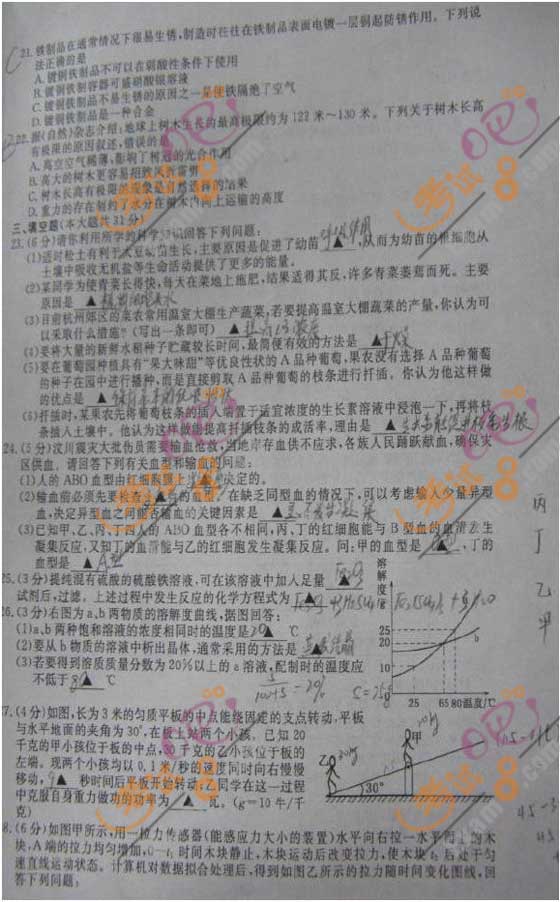 21.铁制品在通常情况下很易生锈,制造时往往在铁制品表面电镀一层铜起防锈作用。下列说
法正确的是
A.镀铜铁制品不可以在弱酸性条件下使用
B.镀铜铁制容器可盛硝酸银溶液
C.镀铜铁制品不易生锈的原因之一是使铁隔绝了空气
D.镀铜铁制品是一种合金
22.据《自然》杂志介绍:地球上树木生长的最高极限约为122米～130米。下列关于树木长高
有极限的原因叙述,错误的是
A.高空空气稀薄,影响了树冠的光合作用
B.高大的树木更容易招致风折雷劈
C.树木长高有极限的现象是自然选择的结果
D.重力的存在制约了水分在树木内向上运输的高度
三、填空题(本大题共31分)
23.(6分)请你利用所学的科学知识回答下列问题:
(1)适时松土有利于大豆幼苗生长,主要原因是促进了幼苗 ▲ ,从而为幼苗的根细胞从
土壤中吸收无机盐等生命活动提供了更多的能量。
(2)某同学为使青菜长得快,每天在菜地上施肥,结果适得其反,许多青菜萎蔫而死。主要
原因是 ▲
(3)目前杭州郊区的菜农常用温室大棚生产蔬菜,若要提高温室大棚蔬菜的产量,你认为可
以采取什么措施?(写出一条即可) ▲
(4)要将大量的新鲜水稻种子贮藏较长时间,最简便有效的方法是 ▲ 干燥
(5)要在葡萄园种植具有“果大味甜”等优良性状的A品种葡萄,果农没有选择A品种葡萄
的种子在园中进行播种,而是直接剪取A品种葡萄的枝条进行扦插。你认为他这样做
的优点是 ▲
(6)扦插时,某果农先将葡萄枝条的插入端置于适宜浓度的生长素溶液中浸泡一下,再将枝
条插入土壤中。他认为这样做能提高扦插枝条的成活率,理由是 ▲
24.(5分)汶川震灾大批伤员需要输血抢救,当地库存血供不应求,各族人民踊跃献血,确保灾
区供血。请回答下列有关血型和输血的问题:
(1)人的ABO血型由红细胞膜上 ▲ 决定的。
(2)输血前必须先要检查 ▲ 的血型。在缺乏同型血的情况下,可以考虑输入少量异型
血,决定异型血之间能否输血的关键因素是 ▲
(3)已知甲、乙、丙、丁四人的ABO血型各不相同,丙、丁的红细胞能与B型血的血清发生
凝集反应,又知丁的血清能与乙的红细胞发生凝集反应。问:甲的血型是 ▲ ,丁的
血型是 ▲ A型
丙
丁
乙
甲
25.(3分)提纯混有硫酸的硫酸铁溶液,可在该溶液中加入足量 ▲
试剂后,过滤。上述过程中发生反应的化学方程式为 ▲
26.(3分)右图为a、b两物质的溶解度曲线,据图回答:
(1)a、b两种饱和溶液的浓度相同时的温度是 ▲ ℃
(2)要从b物质的溶液中析出晶体,通常采用的方法是 ▲
(3)若要得到溶质质量分数为20%以上的a溶液,配制时的温度应
不低于 ▲ ℃
溶解度/克
25
20
10
0 25 65 80 温度/℃
b
27.(4分)如图,长为3米的匀质平板的中点能绕固定的支点转动,平板
与水平地面的夹角为30°,在板上站两个小孩。已知20
千克的甲小孩位于板的中点,30千克的乙小孩位于板的
左端。现两个小孩均以0.1米/秒的速度同时向右慢慢
移动, ▲ 秒时间后平板开始转动;乙同学在这一过程
中克服自身重力做功的功率为 ▲ 瓦。(g=10牛/千
克)
甲
乙
30°
28.(6分)如图甲所示,用一拉力传感器(能感应力大小的装置)水平向右拉一水平面上的木
块,A端的拉力均匀增加,0～t₁时间木块静止,木块运动后改变拉力,使木块t₂后处于匀
速直线运动状态。计算机对数据拟合处理后,得到如图乙所示的拉力随时间变化图线,回
答下列问题:
考试吧